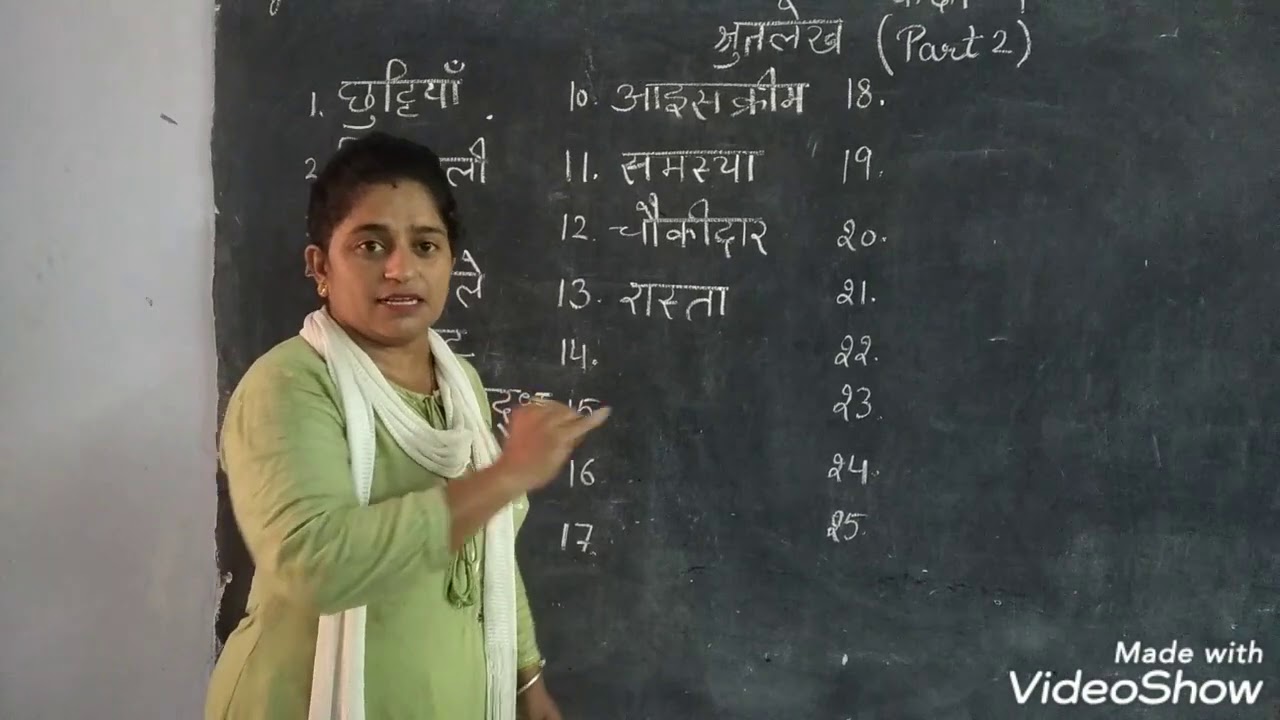 श्रुतलेख (Part 2)
1. छुट्टियाँ
2.
10. आइसक्रीम
11. समस्या
12. चौकीदार
13. रास्ता
14.
15.
16
17.
18.
19.
20.
21.
22.
23
24.
25.
Made with
VideoShow